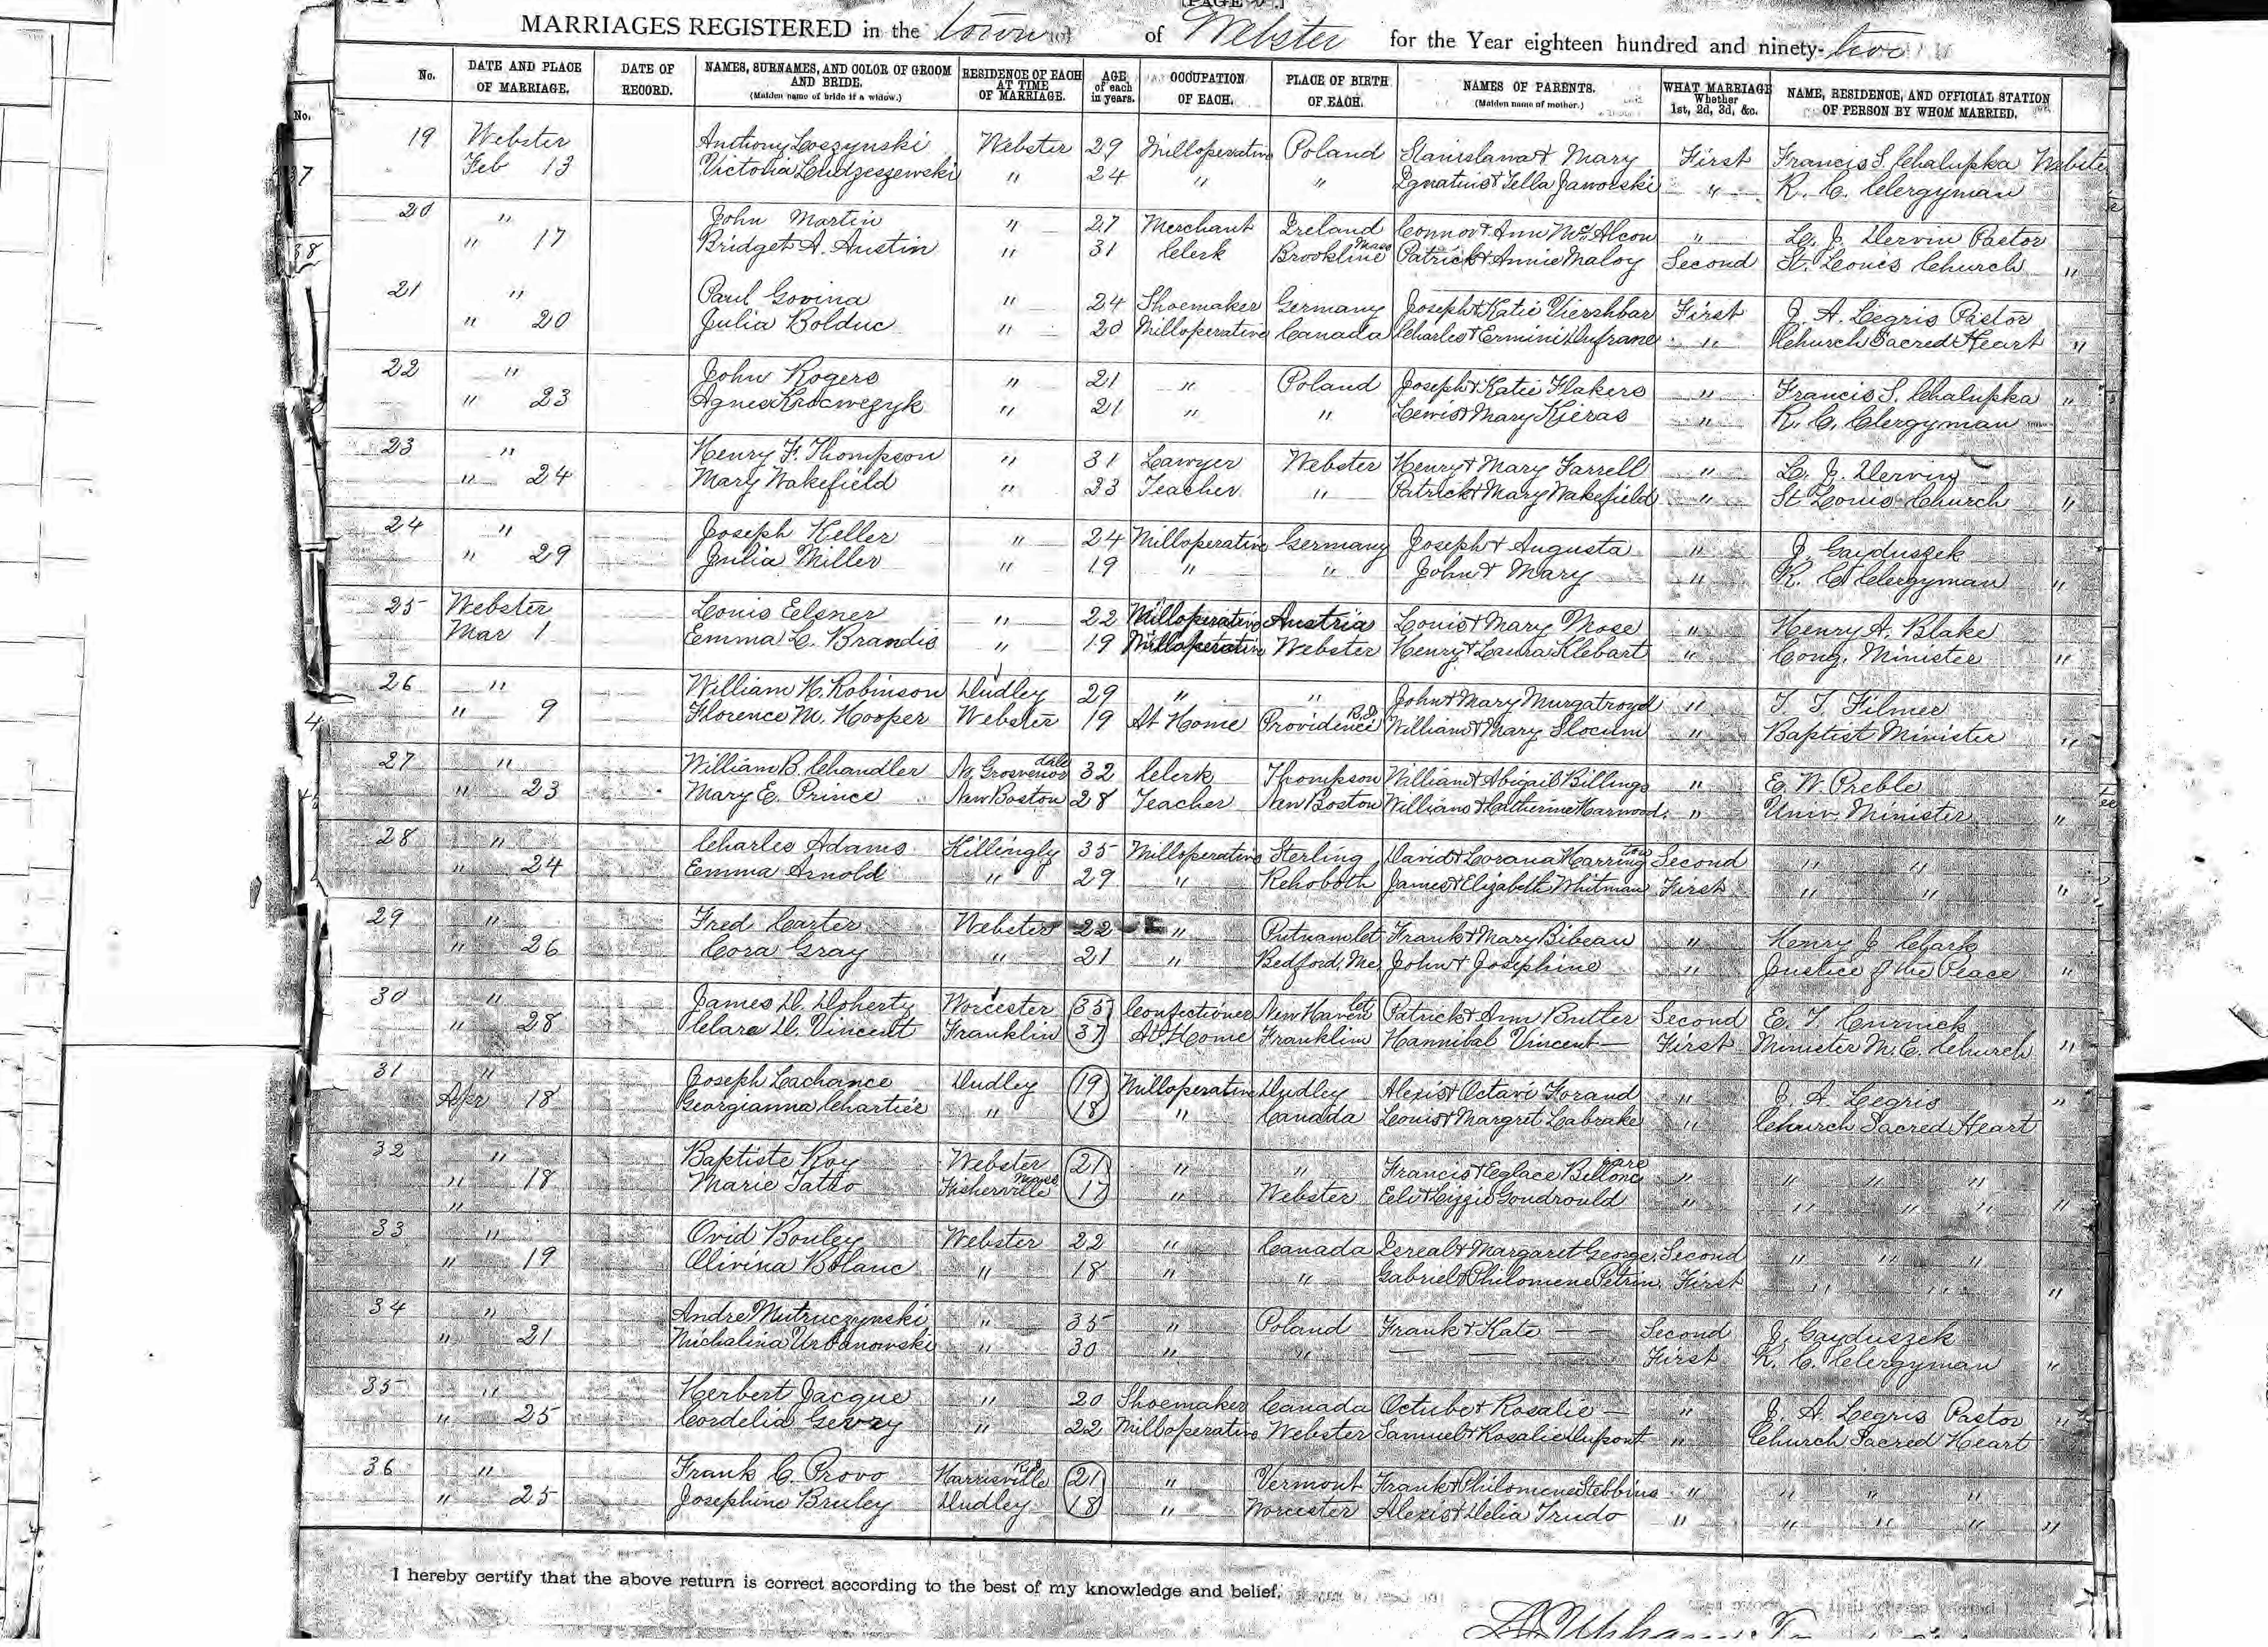 MARRIAGES REGISTERED in the town of Webster for the Year eighteen hundred and ninety-two
No. DATE AND PLACE OF MARRIAGE. DATE OF RECORD. NAMES, SURNAMES, AND COLOR OF GROOM AND BRIDE. (Maiden name of bride if a widow.) RESIDENCE OF EACH AT TIME OF MARRIAGE. AGE of each in years. OCCUPATION OF EACH. PLACE OF BIRTH OF EACH. NAMES OF PARENTS. (Maiden name of mother.) WHAT MARRIAGE Whether 1st, 2d, 3d, &c. NAME, RESIDENCE, AND OFFICIAL STATION OF PERSON BY WHOM MARRIED.
19 Webster Anthony Loszynski Webster 29 Milloperative Poland Stanislana & Mary First Francis S. Chalupka Webste
Feb 13 Victoria Ludzeszewski " 24 " " Ignatius & Tella Jaworski " R. C. Clergyman
20 " John Martin " 27 Merchant Ireland Connor & Ann McAlcon " L. J. Dervin Pastor
" 17 Bridget A. Austin " 31 Clerk Brookline Mass Patrick & Annie Maloy Second St. Louis Church "
21 " Paul Govina " 24 Shoemaker Germany Joseph & Katie Viershbar First J. A. Legris Pastor
" 20 Julia Bolduc " 20 Milloperative Canada Charles & Ermini Dufrane " Church Sacred Heart "
22 " John Rogers " 21 " Poland Joseph & Katie Flakers " Francis S. Chalupka "
" 23 Agnes Krocwezyk " 21 " " Lewis & Mary Kieras " R. C. Clergyman
23 " Henry F. Thompson " 31 Lawyer Webster Henry & Mary Farrell " L. J. Dervin
" 24 Mary Wakefield " 23 Teacher " Patrick & Mary Wakefield " St Louis Church "
24 " Joseph Keller " 24 Milloperative Germany Joseph & Augusta " J. Gayduszek
" 29 Julia Miller " 19 " " John & Mary " R. C. Clergyman "
25 Webster Louis Elsner " 22 Milloperative Austria Louis & Mary Nose " Henry A. Blake
Mar 1 Emma L. Brandis " 19 Milloperative Webster Henry & Laura Klebart " Cong. Minister "
26 " William H. Robinson Dudley 29 " " John & Mary Murgatroyd " T T Filmer
" 9 Florence M. Hooper Webster 19 At Home Providence R.I. William & Mary Slocum " Baptist Minister "
27 " William B. Chandler No. Grosvenordale 32 Clerk Thompson William & Abigail Billings " E. W. Preble
" 23 Mary E. Prince New Boston 28 Teacher New Boston William & Catherine Harwood " Univ. Minister "
28 " Charles Adams Killingly 35 Milloperative Sterling David & Lorana Harrington Second " "
" 24 Emma Arnold " 29 " Rehoboth James & Elizabeth Whitman First " " "
29 " Fred Carter Webster 22 " Putnam Ct Frank & Mary Bibeau " Henry J Clark
" 26 Cora Gray " 21 " Bedford, Me. John & Josephine " Justice of the Peace "
30 " James D. Doherty Worcester 35 Confectioner New Haven Ct Patrick & Ann Butler Second E. T. Curnick
" 28 Clara D. Vincent Franklin 37 At Home Franklin Hannibal Vincent — First Minister M. E. Church "
31 " Joseph Lachance Dudley 19 Milloperative Dudley Alexis & Octavi Forand " J. A. Legris "
Apr 18 Georgianna Chartier " 18 " Canada Louis & Margret Labrake " Church Sacred Heart
32 " Baptiste Roy Webster 21 " " Francis & Eglace " " " "
" 18 Marie Tatto Fisherville Mass 17 " Webster Eli & Lizzie Goudrould " " " " "
"
33 " Ovid Bouley Webster 22 " Canada Zereal & Margaret George Second " " "
" 19 Olivina Bolanc " 18 " " Gabriel & Philomene Petrin First " " "
34 " Andre Mutruczynski " 35 " Poland Frank & Kate — — Second J. Gayduszek
" 21 Michalina Urbanowski " 30 " " — — — First R. C. Clergyman "
35 " Herbert Jacque " 20 Shoemaker Canada Octube & Rosalie — " J. A. Legris Pastor "
" 25 Cordelia Gevry " 22 Milloperative Webster Samuel & Rosalie Dupont " Church Sacred Heart
36 " Frank C. Provo Harrisville R.I. 21 " Vermont Frank & Philomene Stebbins " " " "
" 25 Josephine Bruley Dudley 18 " Worcester Alexis & Delia Trudo " " " " "
I hereby certify that the above return is correct according to the best of my knowledge and belief.